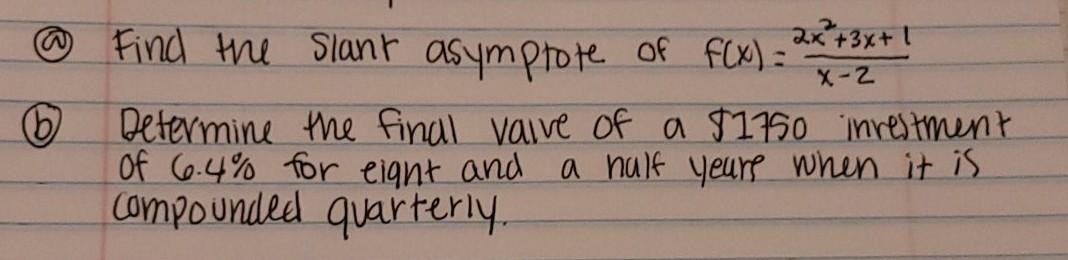 ⓐ Find the slant asymptote of f(x) = (2x²+3x+1)/(x-2)
ⓑ Determine the final value of a $1750 investment
of 6.4% for eight and a half years when it is
compounded quarterly.